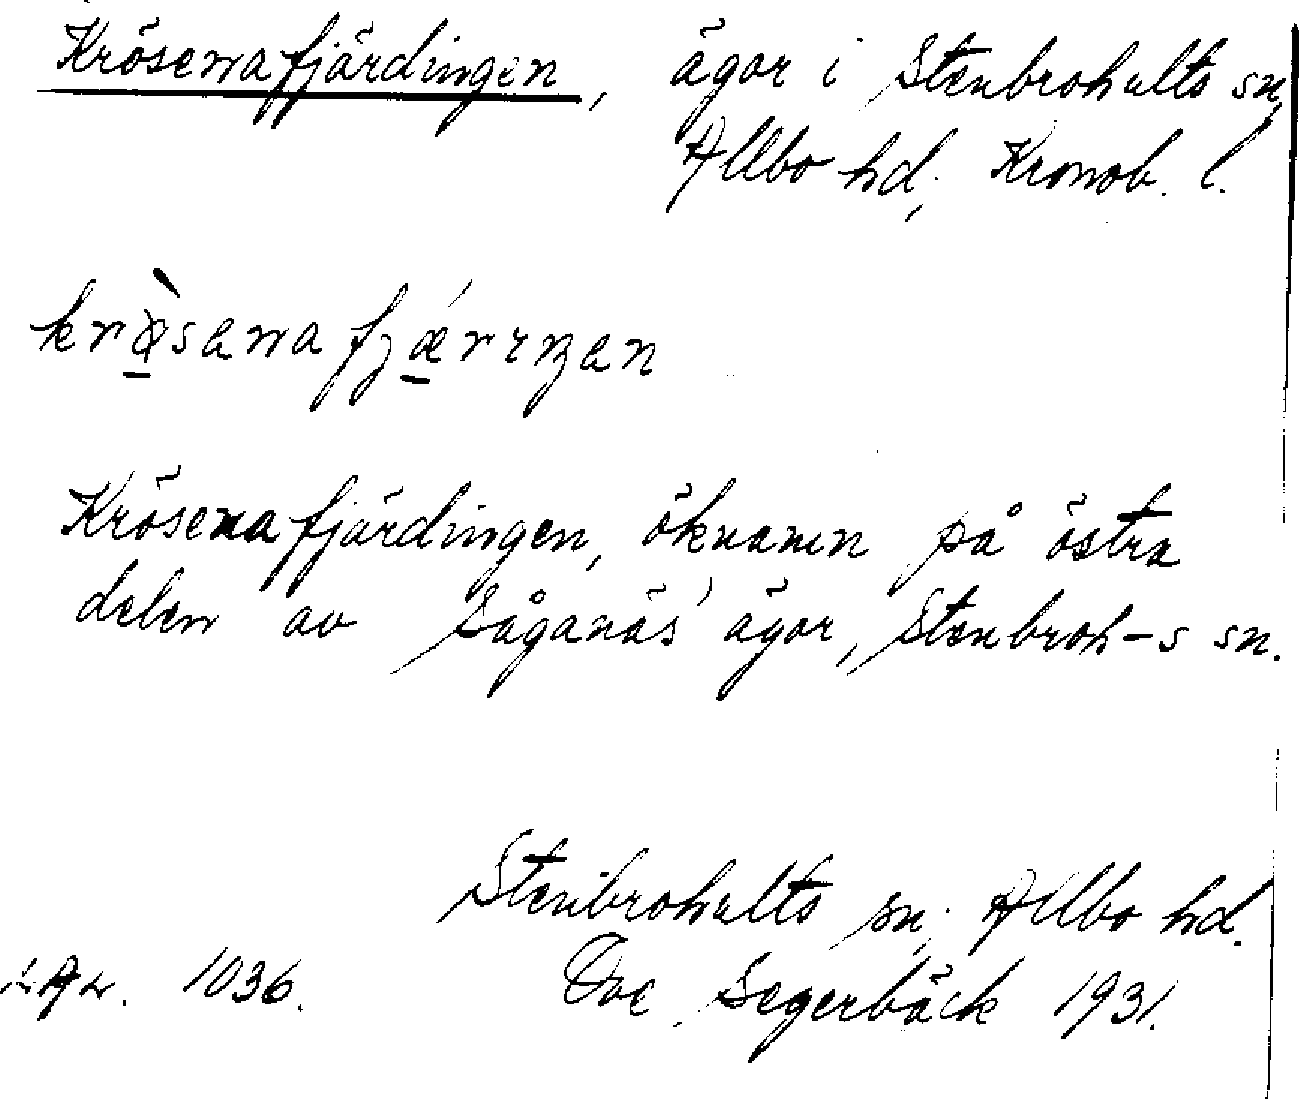 Krösenafjärdingen, ägor i Stenbrohults sn,
Allbo hd, Kronob. l.
Krösenafjärdingen, öknamn på östra
delen av Såganäs' ägor, Stenbroh-s sn.
Stenbrohults sn, Allbo hd.
1036. Ove Segerbäck 1931.